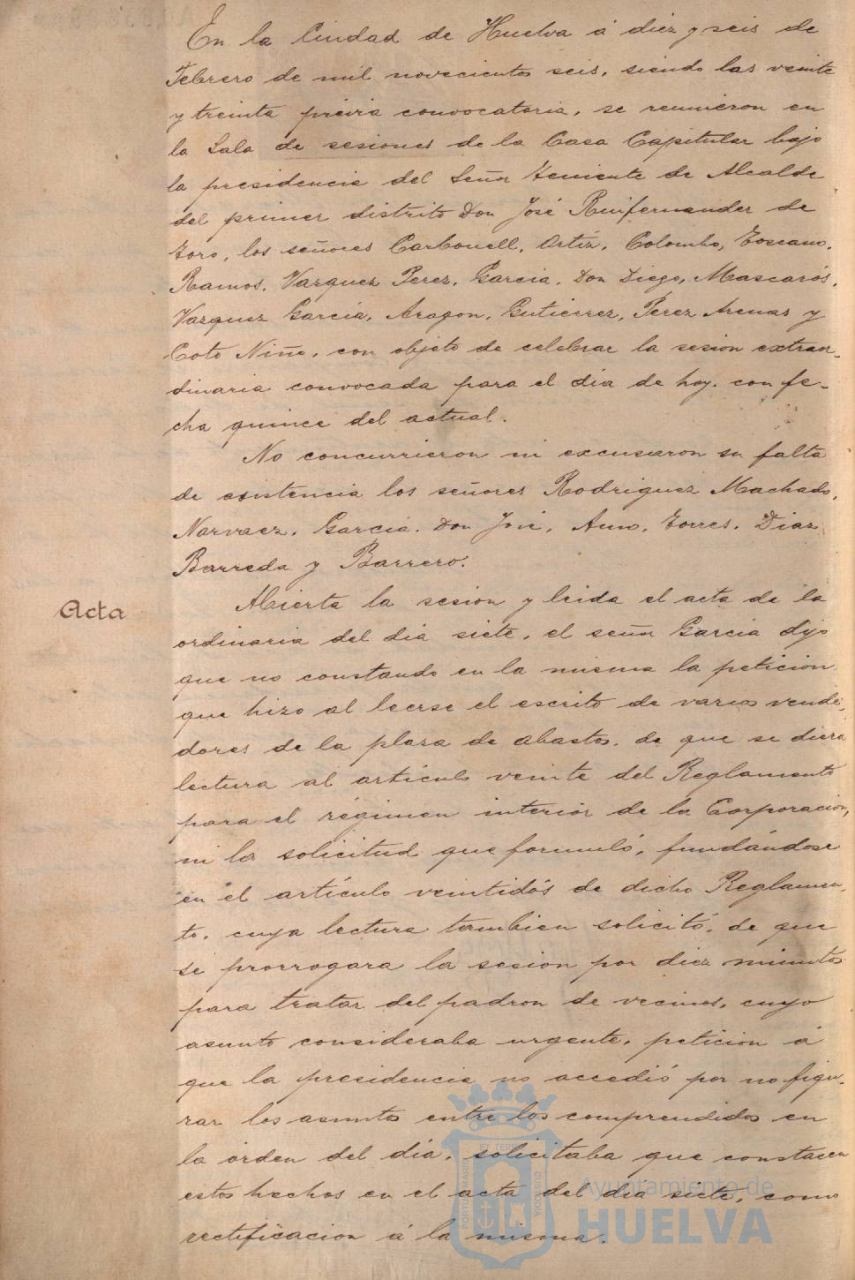 En la Ciudad de Huelva á diez y seis de
Febrero de mil novecientos seis, siendo las veinte
y treinta prévia convocatoria, se reunieron en
la Sala de sesiones de la Casa Capitular bajo
la presidencia del Señor Teniente de Alcalde
del primer distrito Don José Ruifernandez de
Toro, los señores Carbonell, Ortiz, Colombo, Toscano,
Ramos, Vazquez Perez, Garcia, Don Diego, Mascarós,
Vazquez Garcia, Aragon, Gutierrez, Perez Arenas y
Coto Niño, con objeto de celebrar la sesion extraor-
dinaria convocada para el dia de hoy, con fe-
cha quince del actual.
No concurrieron ni excusaron su falta
de asistencia los señores Rodriguez Machado,
Narvaez, Garcia, Don José, Amo, Torres, Diaz
Barreda y Barrero.
Acta
Abierta la sesion y leida el acta de la
ordinaria del dia siete, el señor Garcia dijo
que no constando en la misma la peticion
que hizo al leerse el escrito de varios vende-
dores de la plaza de abastos, de que se diera
lectura al artículo veinte del Reglamento
para el régimen interior de la Corporacion,
ni la solicitud que formuló, fundándose
en el artículo veintidós de dicho Reglamen-
to, cuya lectura tambien solicitó, de que
se prorrogara la sesion por diez minutos
para tratar del padron de vecinos, cuyo
asunto consideraba urgente, peticion á
que la presidencia no accedió por no figu-
rar los asuntos entre los comprendidos en
la órden del dia, solicitaba que constasen
estos hechos en el acta del dia siete, como
rectificacion á la misma.
Ayuntamiento de
HUELVA